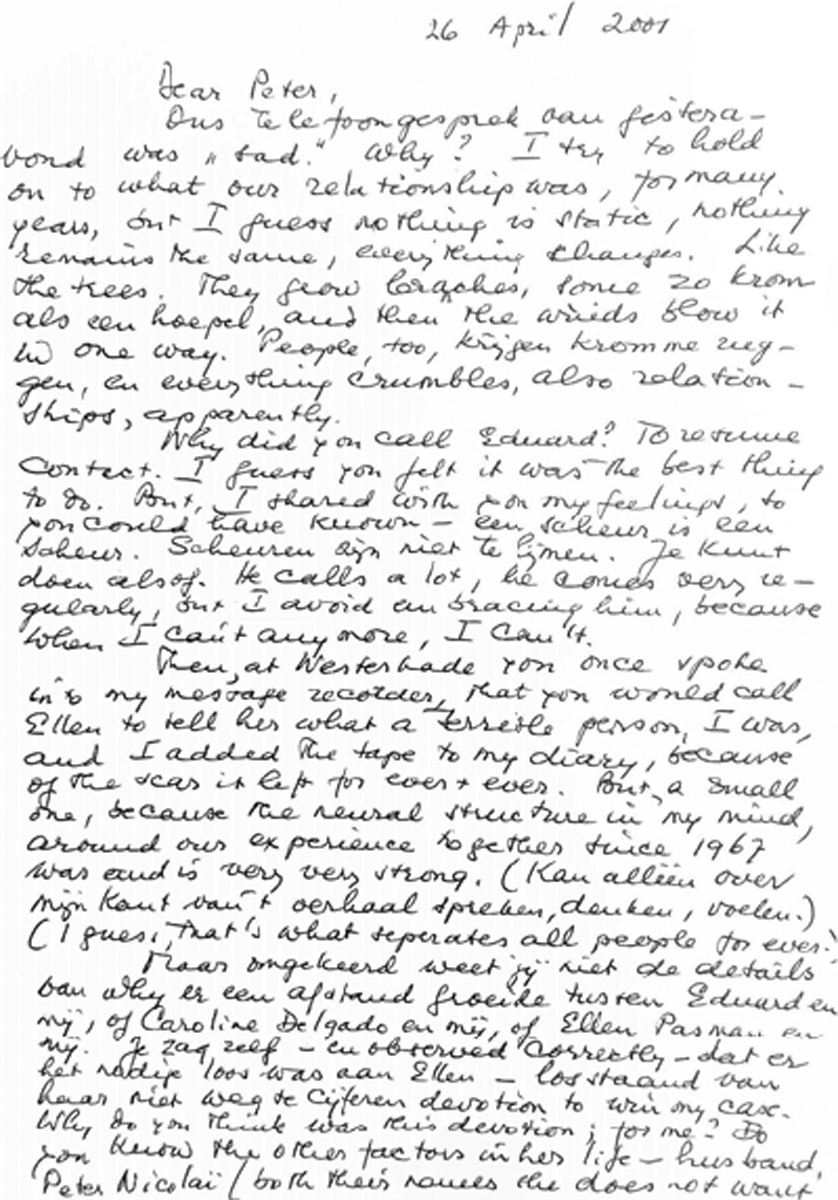 26 April 2001
Dear Peter,
Ons telefoongesprek van gistera-
vond was "sad." Why? I try to hold
on to what our relationship was, for many
years, but I guess nothing is static, nothing
remains the same, everything changes. Like
the trees. They grow braches, some zo krom
als een hoepel, and then the winds blow it
in one way. People, too, krijgen kromme rug-
gen, en everything crumbles, also relation-
ships, apparently.
Why did you call Eduard? To resume
contact. I guess you felt it was the best thing
to do. But, I shared with you my feelings, so
you could have known - een scheur is een
scheur. Scheuren zijn niet te lijmen. Je kunt
doen alsof. He calls a lot, he comes very re-
gularly, but I avoid embracing him, because
when I can't anymore, I can't.
Then, at Westerkade you once spoke
into my message recorder, that you would call
Ellen to tell her what a terrible person, I was,
and I added the tape to my diary, because
of the scar it left for ever + ever. But, a small
one, because the neural structure in my mind,
around our experience together since 1967
was and is very very strong. (Kan alleen over
mijn kant van 't verhaal spreken, denken, voelen.)
(I guess, that's what seperates all people for ever.
Maar omgekeerd weet jij niet de details
van why er een afstand groeide tussen Eduard en
mij, of Caroline Delgado en mij, of Ellen Pasman en
mij. Je zag zelf - en observed correctly - dat er
het nodige loos was aan Ellen - losstaand van
haar niet weg te cijferen devotion to win my case.
Why do you think was this devotion; for me? Do
you know the other factors in her life - husband,
Peter Nicolaï (both their names she does not want